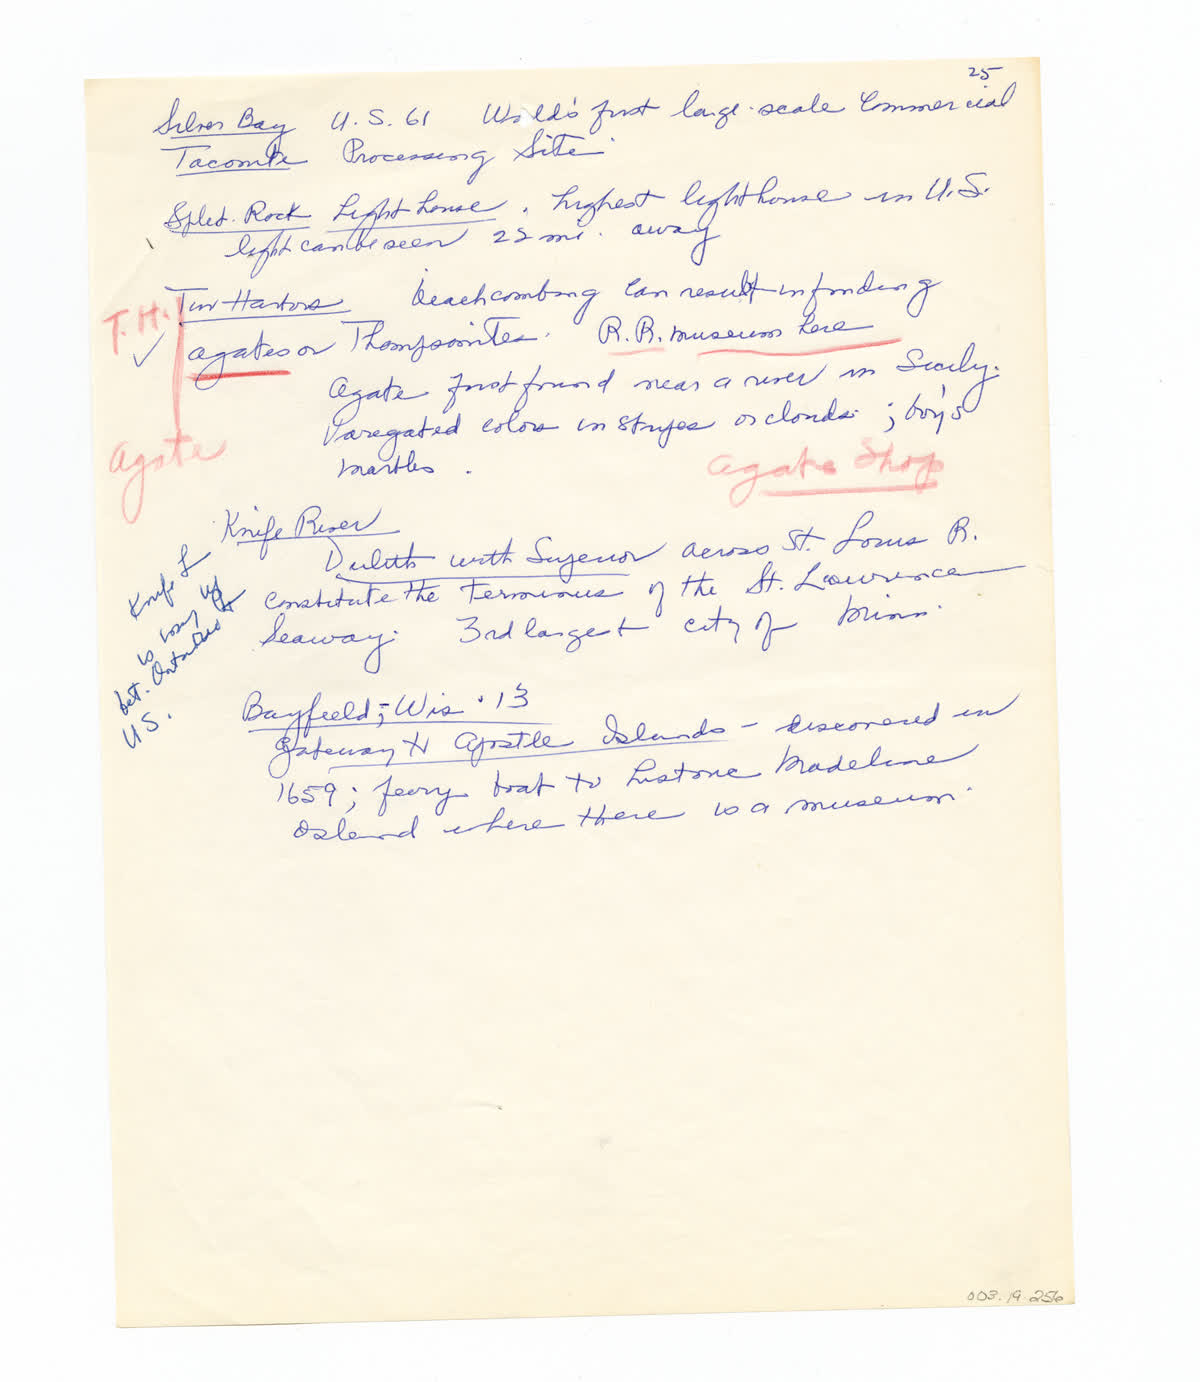 25
Silver Bay U.S. 61 World's first large-scale Commercial
Taconite Processing Site.
Split Rock Light house. highest lighthouse in U.S.
light can be seen 22 mi. away
Two Harbors beachcombing can result in finding
T.H.
agates or Thompsonites. R.R. museum here
agate first found near a river in Sicily.
Varegated colors in stripes or clouds; boy's
agate
marbles.
agate Shop
Knife River
Duluth with Superior across St. Louis R.
constitute the terminus of the St. Lawrence
Seaway. 3rd largest city of Minn.
Knife L
is way up
bet. Ontario &
U.S.
Bayfield, Wis. 13
gateway to Apostle Islands - discovered in
1659; ferry boat to historic Madeline
Island where there is a museum.
003.19.256